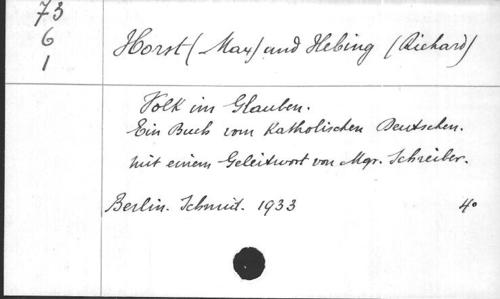 73
6
1
Horst (Max) und Hebing (Richard)
Volk im Glauben.
Ein Buch vom Katholischen Deutschen.
mit einem Geleitwort von Mgr. Schreiber.
Berlin. Schmid. 1933 4°